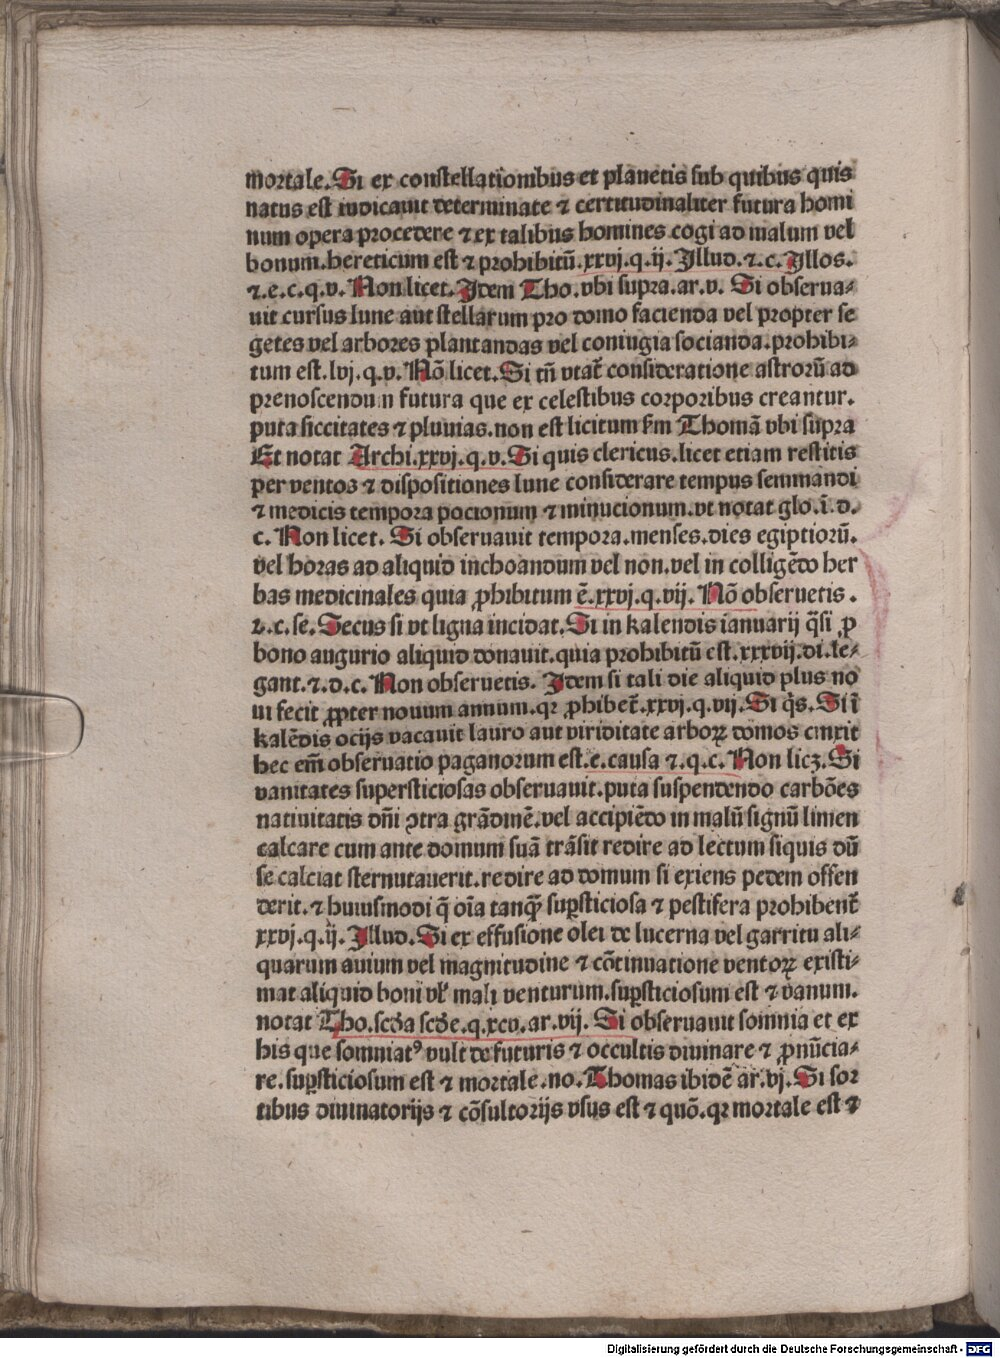 mortale. Si ex constellationibus et planetis sub quibus quis
natus est iudicauit determinate ⁊ certitudinaliter futura homi
num opera procedere ⁊ ex talibus homines cogi ad malum vel
bonum. hereticum est ⁊ prohibitū. xxvj. q. ij. Illud. ⁊. c. Illos.
⁊. e. c. q. v. Non licet. Idem Tho. vbi supra. ar. v. Si obserua-
uit cursus lune aut stellarum pro domo facienda vel propter se
getes vel arbores plantandas vel coniugia socianda. prohibi-
tum est. lvj. q. v. Nō licet. Si tn̄ vtat̄ consideratione astrorū ad
prenoscendun futura que ex celestibus corporibus creantur.
puta siccitates ⁊ pluuias. non est licitum s̄m Thomā vbi supra
Et notat Archi. xxvj. q. v. Si quis clericus. licet etiam restitis
per ventos ⁊ dispositiones lune considerare tempus seminandi
⁊ medicis tempora pocionum ⁊ minucionum. vt notat glo. ī. d.
c. Non licet. Si obseruauit tempora. menses. dies egiptiorū.
vel horas ad aliquid inchoandum vel non. vel in colligēdo her
bas medicinales quia ꝓhibitum ē. xxvj. q. vij. Nō obseruetis.
⁊. c. se. Secus si vt ligna incidat. Si in kalendis ianuarij q̄si ꝓ
bono augurio aliquid donauit. quia prohibitū est. xxxvij. di. le-
gant. ⁊. d. c. Non obseruetis. Idem si tali die aliquid plus no
ui fecit ꝓpter nouum annum. qꝛ ꝓhibet̄. xxvj. q. vij. Si q̄s. Si ī
kalēdis ocijs vacauit lauro aut viriditate arboꝝ domos cinxit
hec em̄ obseruatio paganorum est. e. causa ⁊. q. c. Non licꝫ. Si
vanitates supersticiosas obseruauit. puta suspendendo carbōes
natiuitatis dn̄i ꝯtra grādinē. vel accipiēdo in malū signū limen
calcare cum ante domum suā trāsit redire ad lectum siquis dū
se calciat sternutauerit. redire ad domum si exiens pedem offen
derit. ⁊ huiusmodi q̄ oīa tanꝙ̄ suꝑsticiosa ⁊ pestifera prohibent̄
xxvj. q. ij. Illud. Si ex effusione olei de lucerna vel garritu ali-
quarum auium vel magnitudine ⁊ cōtinuatione ventoꝝ existi-
mat aliquid boni vꝉ mali venturum. suꝑsticiosum est ⁊ vanum.
notat Tho. scd̄a scd̄e. q. xcv. ar. vij. Si obseruauit somnia et ex
his que somniatꝰ vult de futuris ⁊ occultis diuinare ⁊ ꝓnūcia-
re. suꝑsticiosum est ⁊ mortale. no. Thomas ibidē ar. vj. Si sor
tibus diuinatorijs ⁊ cōsultorijs vsus est ⁊ quō. qꝛ mortale est ⁊
Digitalisierung gefördert durch die Deutsche Forschungsgemeinschaft - DFG